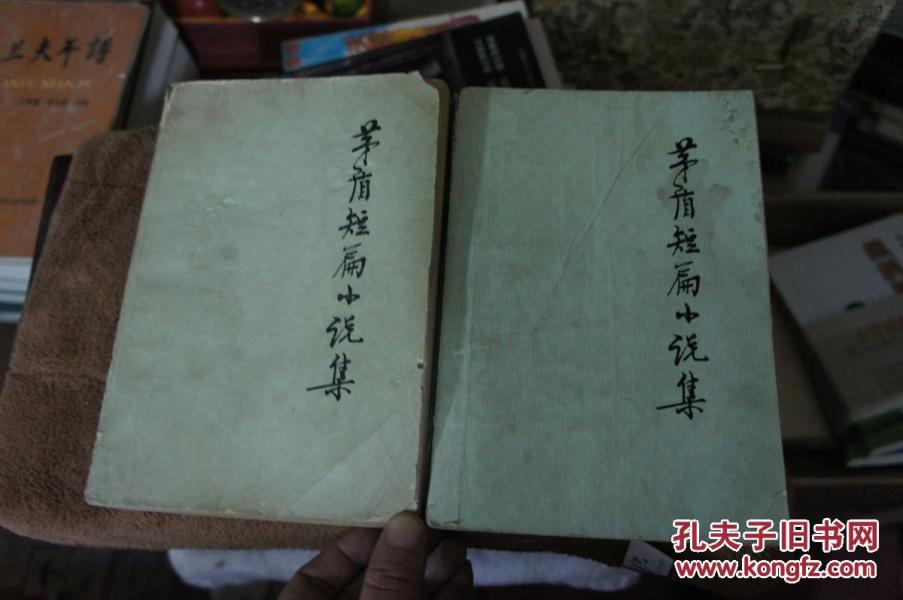 兰夫年谱
茅盾短篇小说集
茅盾短篇小说集
孔夫子旧书网
www.kongfz.com